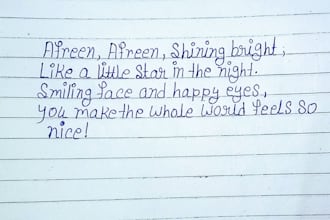 Afreen, Afreen, Shining bright,
Like a little Star in the night.
Smiling face and happy eyes,
You make the whole world feels so
nice!